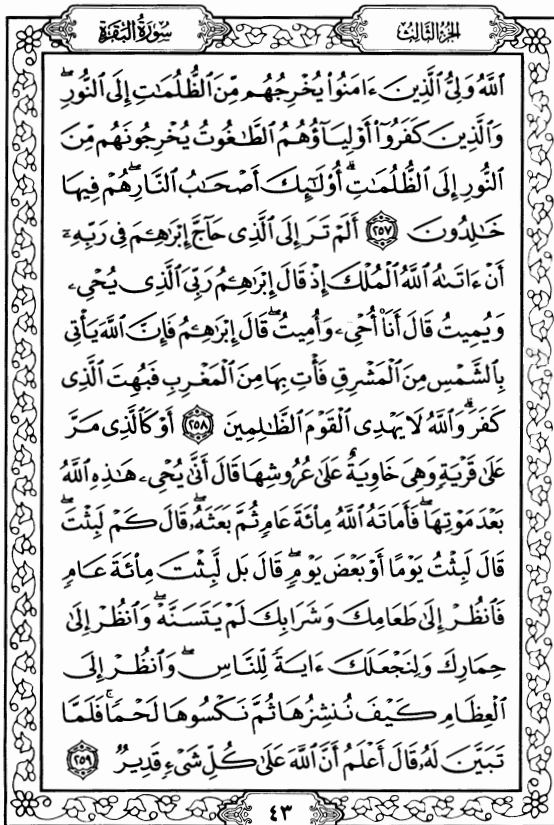 سُورَةُ البَقَرَةِ
الجُزءُ الثَّالِثُ
ٱللَّهُ وَلِىُّ ٱلَّذِينَ ءَامَنُوا۟ يُخْرِجُهُم مِّنَ ٱلظُّلُمَٰتِ إِلَى ٱلنُّورِ ۖ
وَٱلَّذِينَ كَفَرُوٓا۟ أَوْلِيَآؤُهُمُ ٱلطَّٰغُوتُ يُخْرِجُونَهُم مِّنَ
ٱلنُّورِ إِلَى ٱلظُّلُمَٰتِ ۗ أُو۟لَٰٓئِكَ أَصْحَٰبُ ٱلنَّارِ ۖ هُمْ فِيهَا
خَٰلِدُونَ ٢٥٧ أَلَمْ تَرَ إِلَى ٱلَّذِى حَآجَّ إِبْرَٰهِـۧمَ فِى رَبِّهِۦٓ
أَنْ ءَاتَىٰهُ ٱللَّهُ ٱلْمُلْكَ إِذْ قَالَ إِبْرَٰهِـۧمُ رَبِّىَ ٱلَّذِى يُحْىِۦ
وَيُمِيتُ قَالَ أَنَا۠ أُحْىِۦ وَأُمِيتُ ۖ قَالَ إِبْرَٰهِـۧمُ فَإِنَّ ٱللَّهَ يَأْتِى
بِٱلشَّمْسِ مِنَ ٱلْمَشْرِقِ فَأْتِ بِهَا مِنَ ٱلْمَغْرِبِ فَبُهِتَ ٱلَّذِى
كَفَرَ ۗ وَٱللَّهُ لَا يَهْدِى ٱلْقَوْمَ ٱلظَّٰلِمِينَ ٢٥٨ أَوْ كَٱلَّذِى مَرَّ
عَلَىٰ قَرْيَةٍ وَهِىَ خَاوِيَةٌ عَلَىٰ عُرُوشِهَا قَالَ أَنَّىٰ يُحْىِۦ هَٰذِهِ ٱللَّهُ
بَعْدَ مَوْتِهَا ۖ فَأَمَاتَهُ ٱللَّهُ مِا۟ئَةَ عَامٍ ثُمَّ بَعَثَهُۥ ۖ قَالَ كَمْ لَبِثْتَ ۖ
قَالَ لَبِثْتُ يَوْمًا أَوْ بَعْضَ يَوْمٍ ۖ قَالَ بَل لَّبِثْتَ مِا۟ئَةَ عَامٍ
فَٱنظُرْ إِلَىٰ طَعَامِكَ وَشَرَابِكَ لَمْ يَتَسَنَّهْ ۖ وَٱنظُرْ إِلَىٰ
حِمَارِكَ وَلِنَجْعَلَكَ ءَايَةً لِّلنَّاسِ ۖ وَٱنظُرْ إِلَى
ٱلْعِظَامِ كَيْفَ نُنشِزُهَا ثُمَّ نَكْسُوهَا لَحْمًا ۚ فَلَمَّا
تَبَيَّنَ لَهُۥ قَالَ أَعْلَمُ أَنَّ ٱللَّهَ عَلَىٰ كُلِّ شَىْءٍ قَدِيرٌ ٢٥٩
٤٣